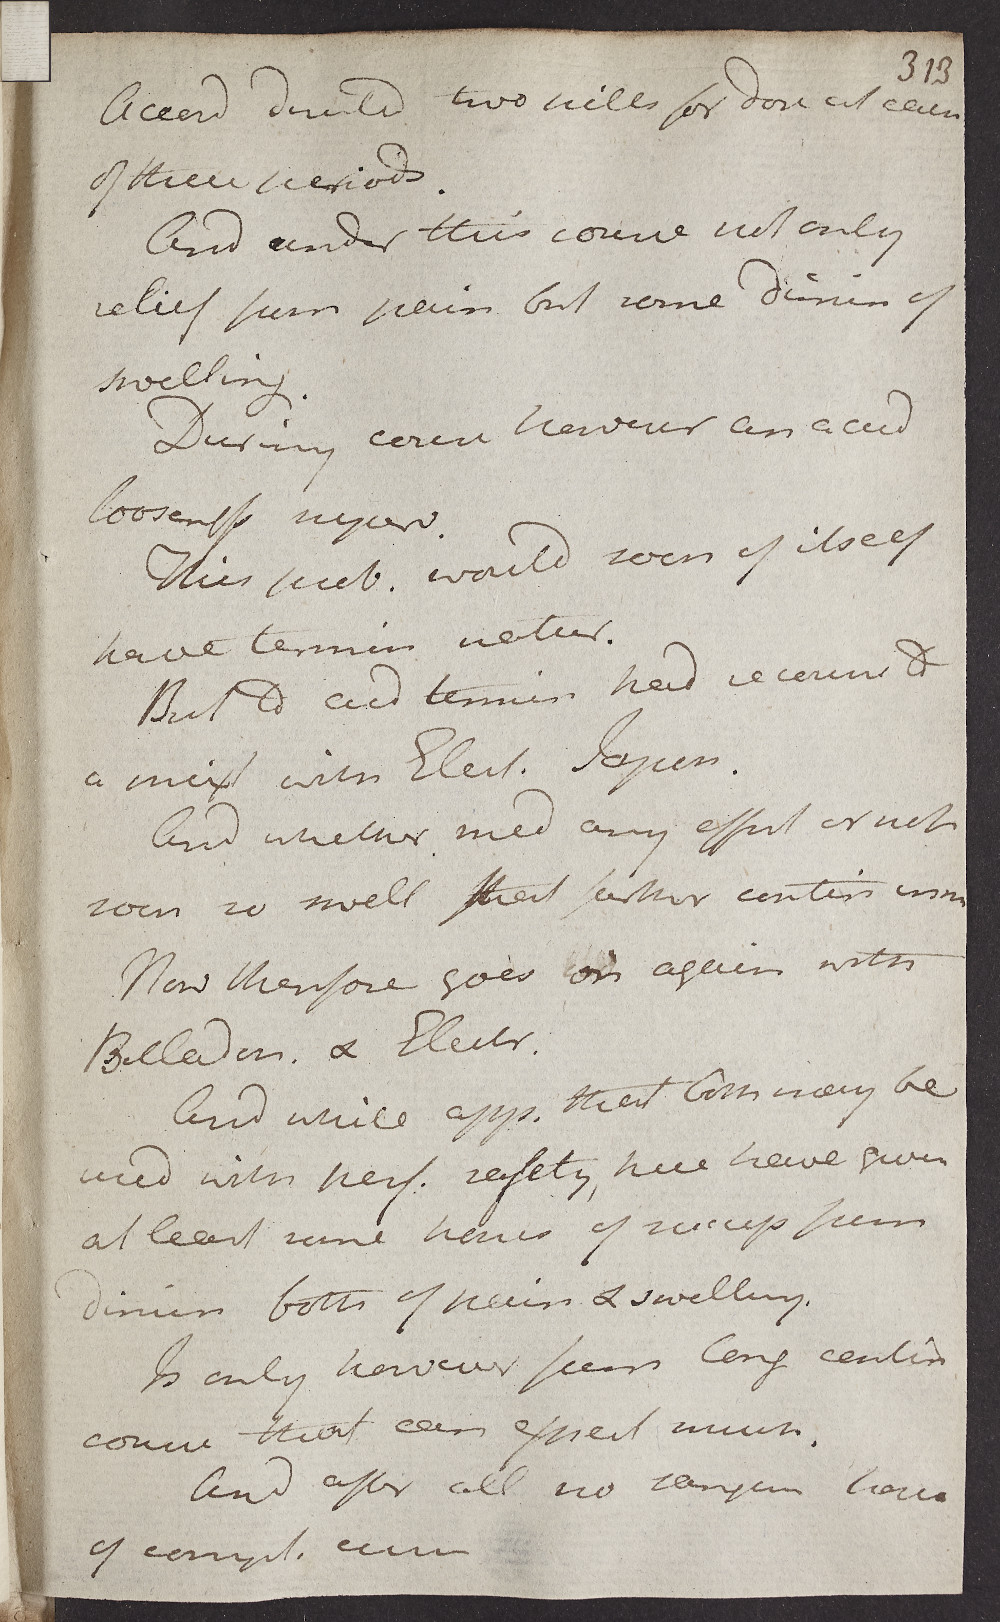 313
Accord direct'd two pills for dose at each
of these periods.
And under this course not only
relief from pain but some dimin of
swelling.
During course however an accid
looseness superv.
This prob. would soon of itself
have termin natur.
But to aid termin had recourse to
a mixt with Elect. Japon.
And whether med any effect or not
soon so well that farther contin unn
Now therefore goes on again with
Belladon. & Electr.
And while app. that both may be
used with perf. safety, have given
at least some hopes of success from
dimin both of pain & swelling.
Is only however from long contin
course that can expect much.
And after all no sanguin hope
of compl. cure